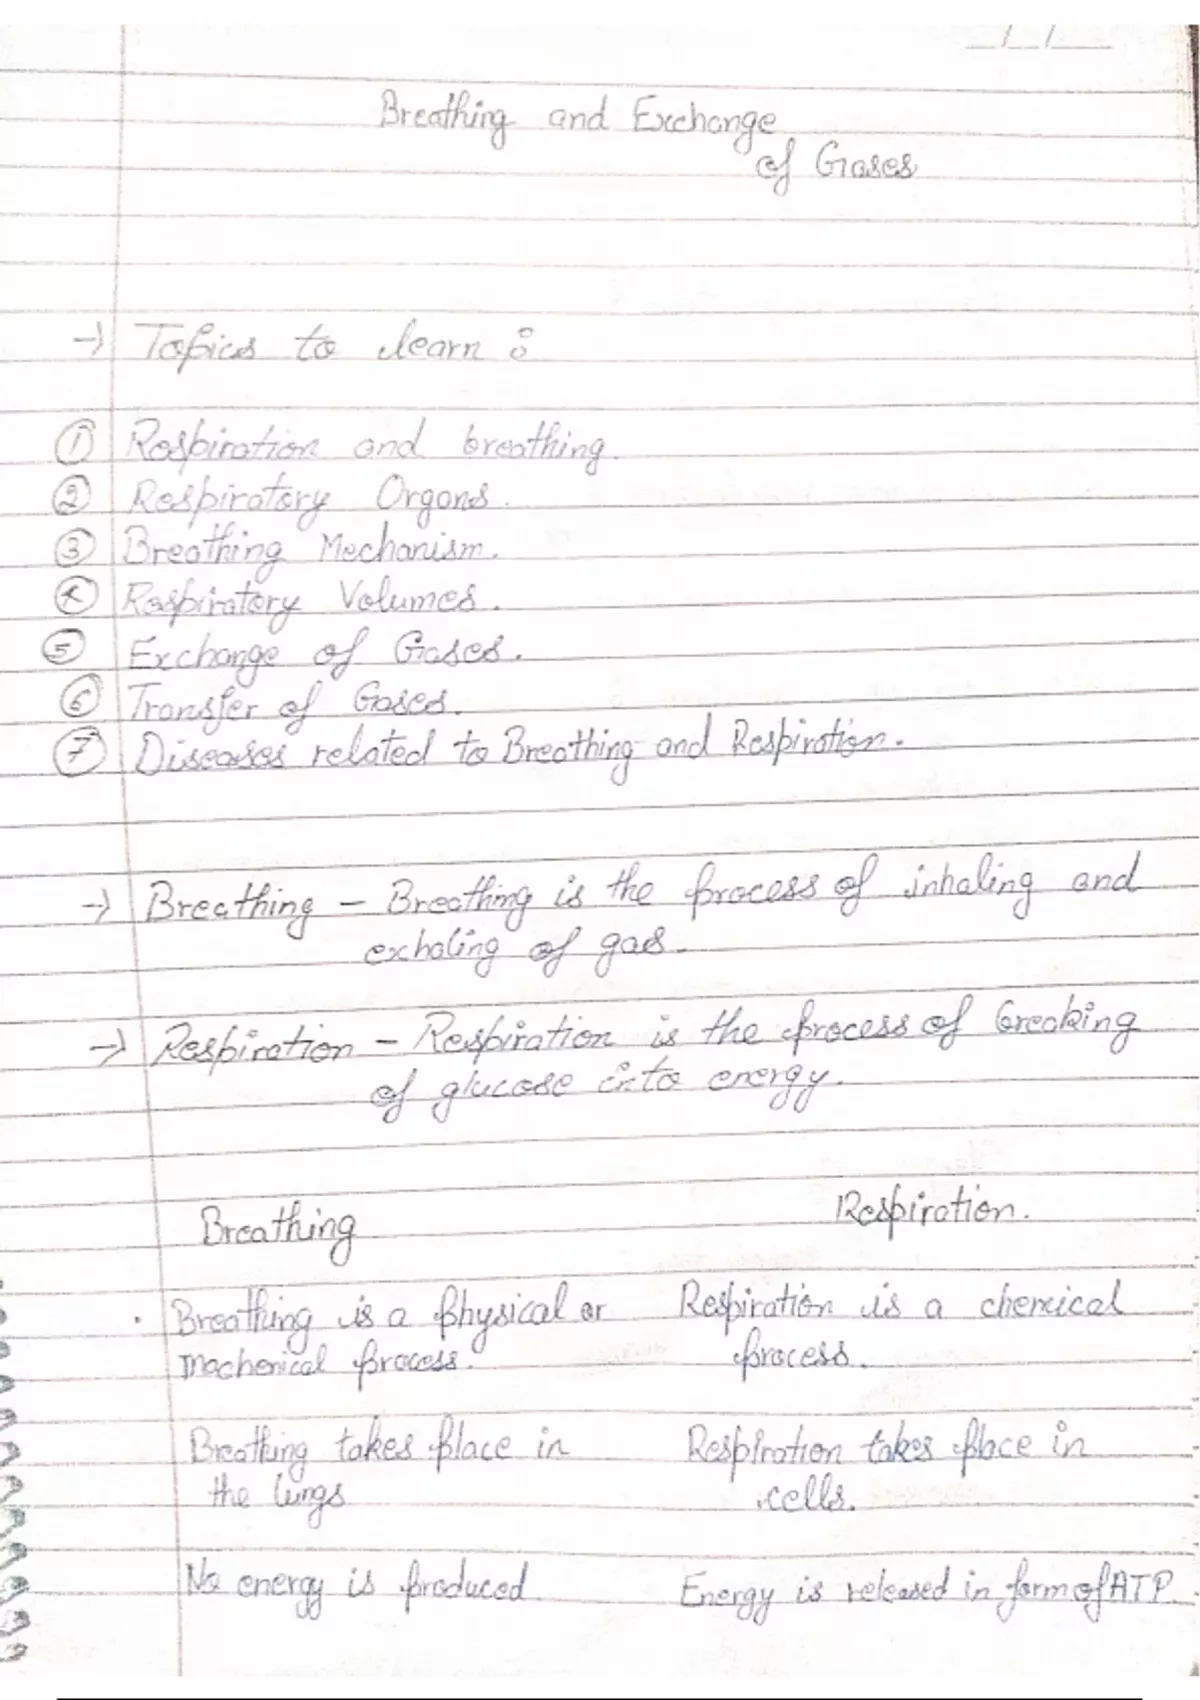 Breathing and Exchange
of Gases
→ Topics to learn :
① Respiration and breathing.
② Respiratory Organs.
③ Breathing Mechanism.
④ Respiratory Volumes.
⑤ Exchange of Gases.
⑥ Transfer of Gases.
⑦ Diseases related to Breathing and Respiration.
→ Breathing - Breathing is the process of inhaling and
exhaling of gas.
→ Respiration - Respiration is the process of breaking
of glucose into energy.
Breathing Respiration.
· Breathing is a physical or Respiration is a chemical
mechenical process. process.
Breathing takes place in Respiration takes place in
the lungs cells.
No energy is produced. Energy is released in form of ATP.